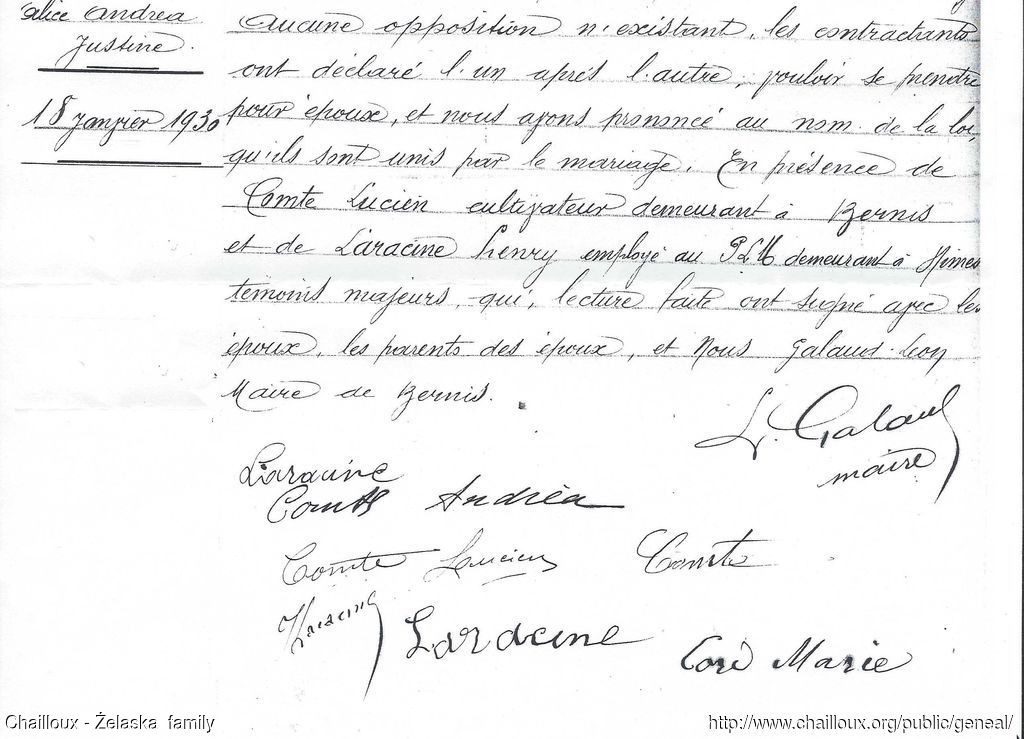 Alice Andréa
Justine.
18 Janvier 1930
Aucune opposition n'existant, les contractants
ont déclaré l'un après l'autre, vouloir se prendre
pour époux, et nous avons prononcé au nom de la loi,
qu'ils sont unis par le mariage. En présence de
Comte Lucien cultivateur demeurant à Bernis
et de Laracine Henry employé au PLM demeurant à Nimes
témoins majeurs, qui, lecture faite ont signé avec les
époux, les parents des époux, et Nous Galaud Léon
Maire de Bernis.
L. Galaud
maire
Laracine
Comte Andréa
Comte Lucien Comte
Laracine
Laracine
Marie
Chailloux - Želaska family
http://www.chailloux.org/public/geneal/